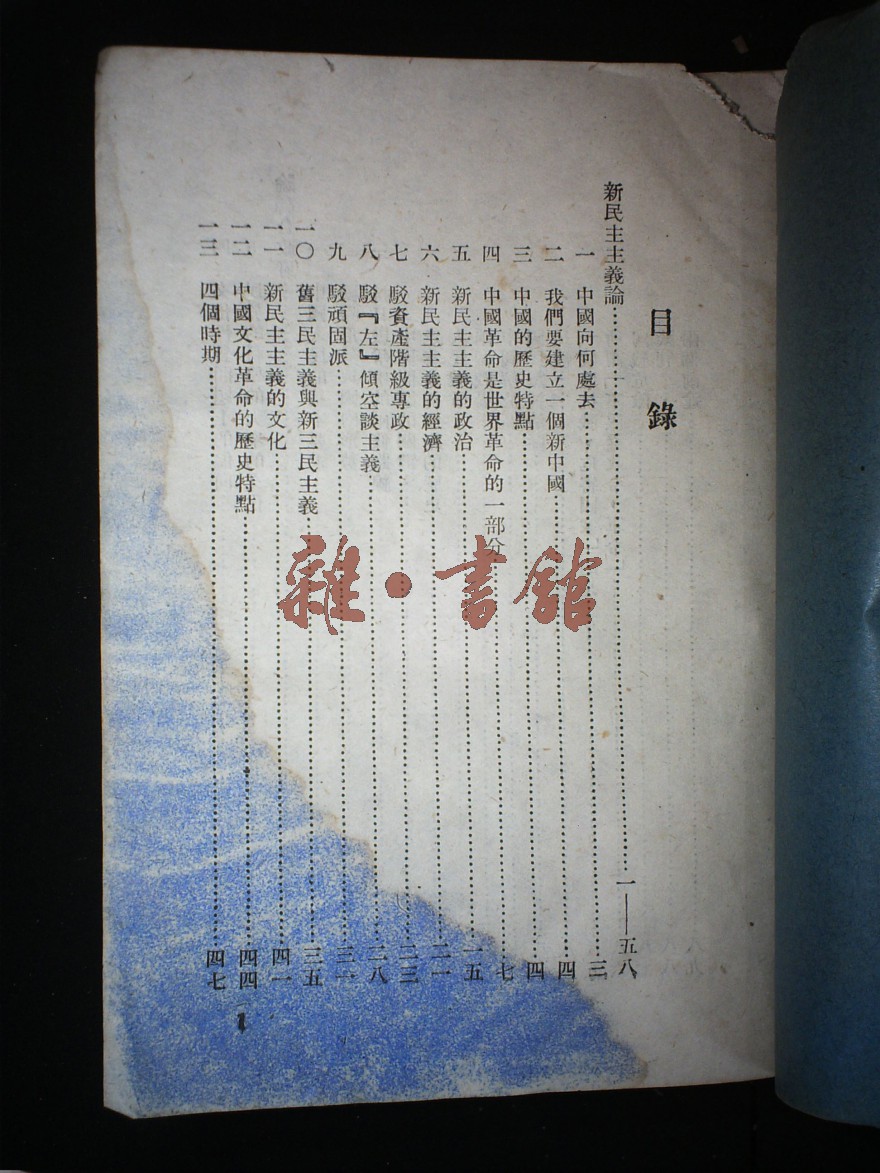 目錄
新民主主義論……一——五八
一 中國向何處去……三
二 我們要建立一個新中國……四
三 中國的歷史特點……四
四 中國革命是世界革命的一部分……七
五 新民主主義的政治……一五
六 新民主主義的經濟……二一
七 駁資產階級專政……二三
八 駁『左』傾空談主義……二八
九 駁頑固派……三一
一〇 舊三民主義與新三民主義……三五
一一 新民主主義的文化……四一
一二 中國文化革命的歷史特點……四四
一三 四個時期……四七
1
雜·書館